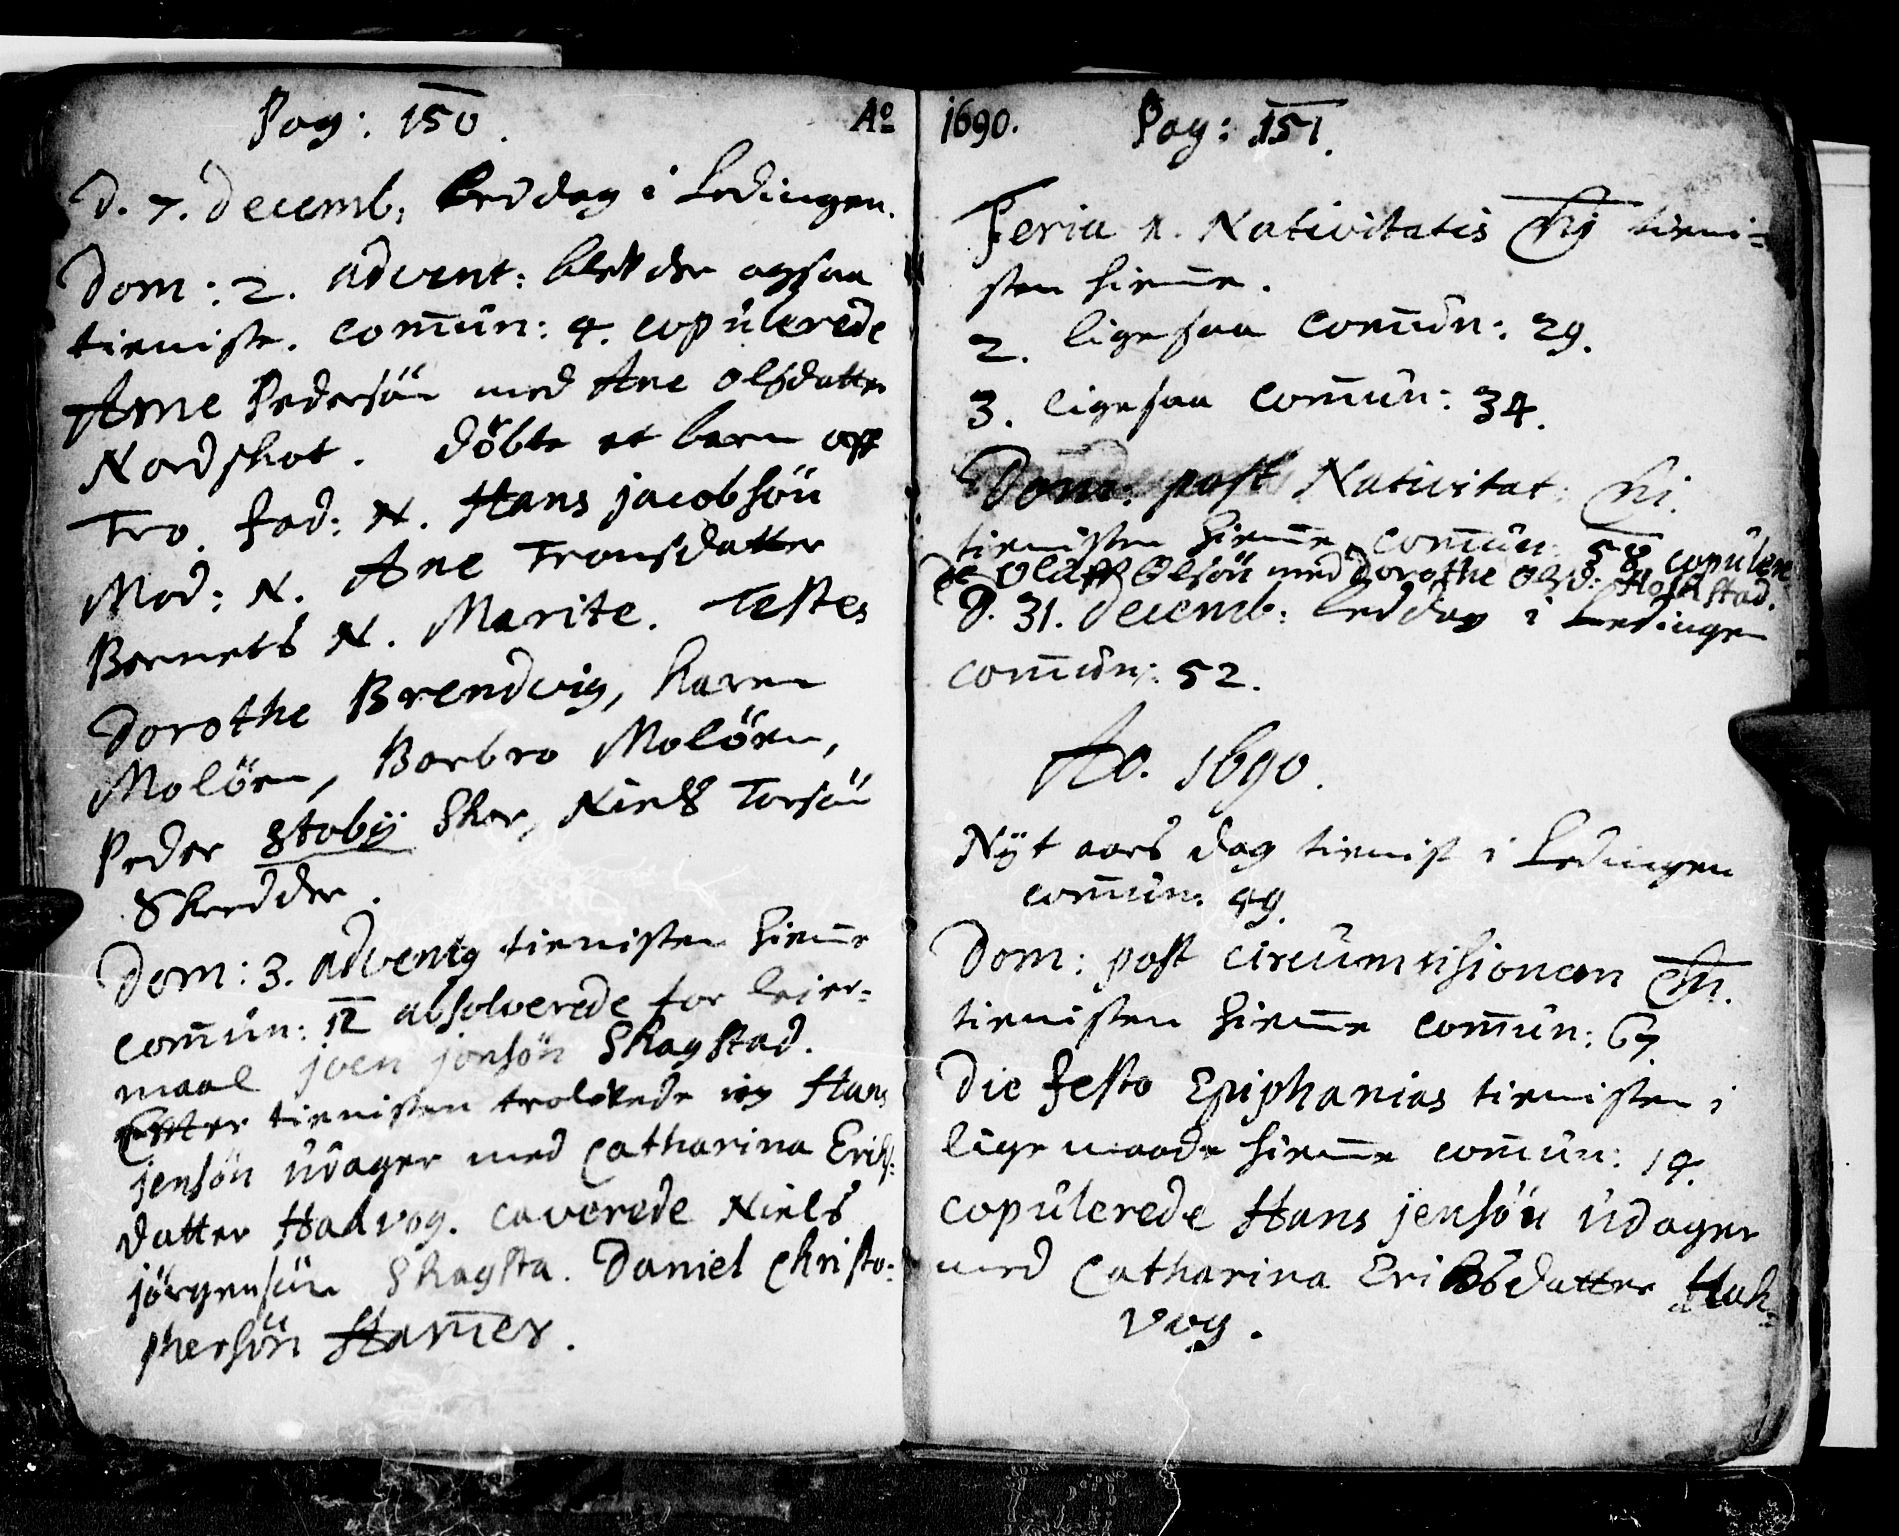 Pag: 150.
D. 7. Decemb, beddag i Ledingen.
Dom: 2. advent: bleff der ogsaa
tieniste. Com̄un: 4. copulerede
Arne Pedersön med Ane Olsdatter
Nordskot. döbte et barn off
Tro. fad: N. Hans jacobsön
Mod: N. Ane Tronsdatter
Barnets N. Marite. Testes
Dorothe Brendvig, Karen
Molöen, Barbro Molöen,
Peder Stobÿ Skar, Niels Torsön
Skredder.
Dom: 3. adventq tienisten hiem̄e
com̄un: 12 absolverede for leier-
maal joen jonsön Skagstad.
Efter tienisten trolovede ieg Hans
jensön Udager med Catharina Erichs:
datter Hadvog. caverede Niels
jörgensön Skagsta. Daniel Christo:
phersön Ham̄er.
Ao 1690. Pag: 151.
Feria 1. Nativitatis Chj tieni-
sten hiem̄e.
2. ligesaa Com̄un: 29.
3. ligesaa com̄un: 34.
Dom: post Nativitat: Chi.
tienisten hiem̄e com̄un: 58 copulere
de Oluff Olsön med Dorothe Olsd:
D. 31. Decemb: beddag i Ledingen
com̄un: 52.
Ao. 1690.
Nÿt aars dag tienist i Ledingen
com̄un: 49.
Dom: post circumcisionem Chi.
tienisten hiem̄e com̄un: 67.
Die festo Epiphanias tienisten i
lige maade hiem̄e com̄un: 14.
copulerede Hans jensön Udager
med Catharina Eriksdatter Hah-
vog.